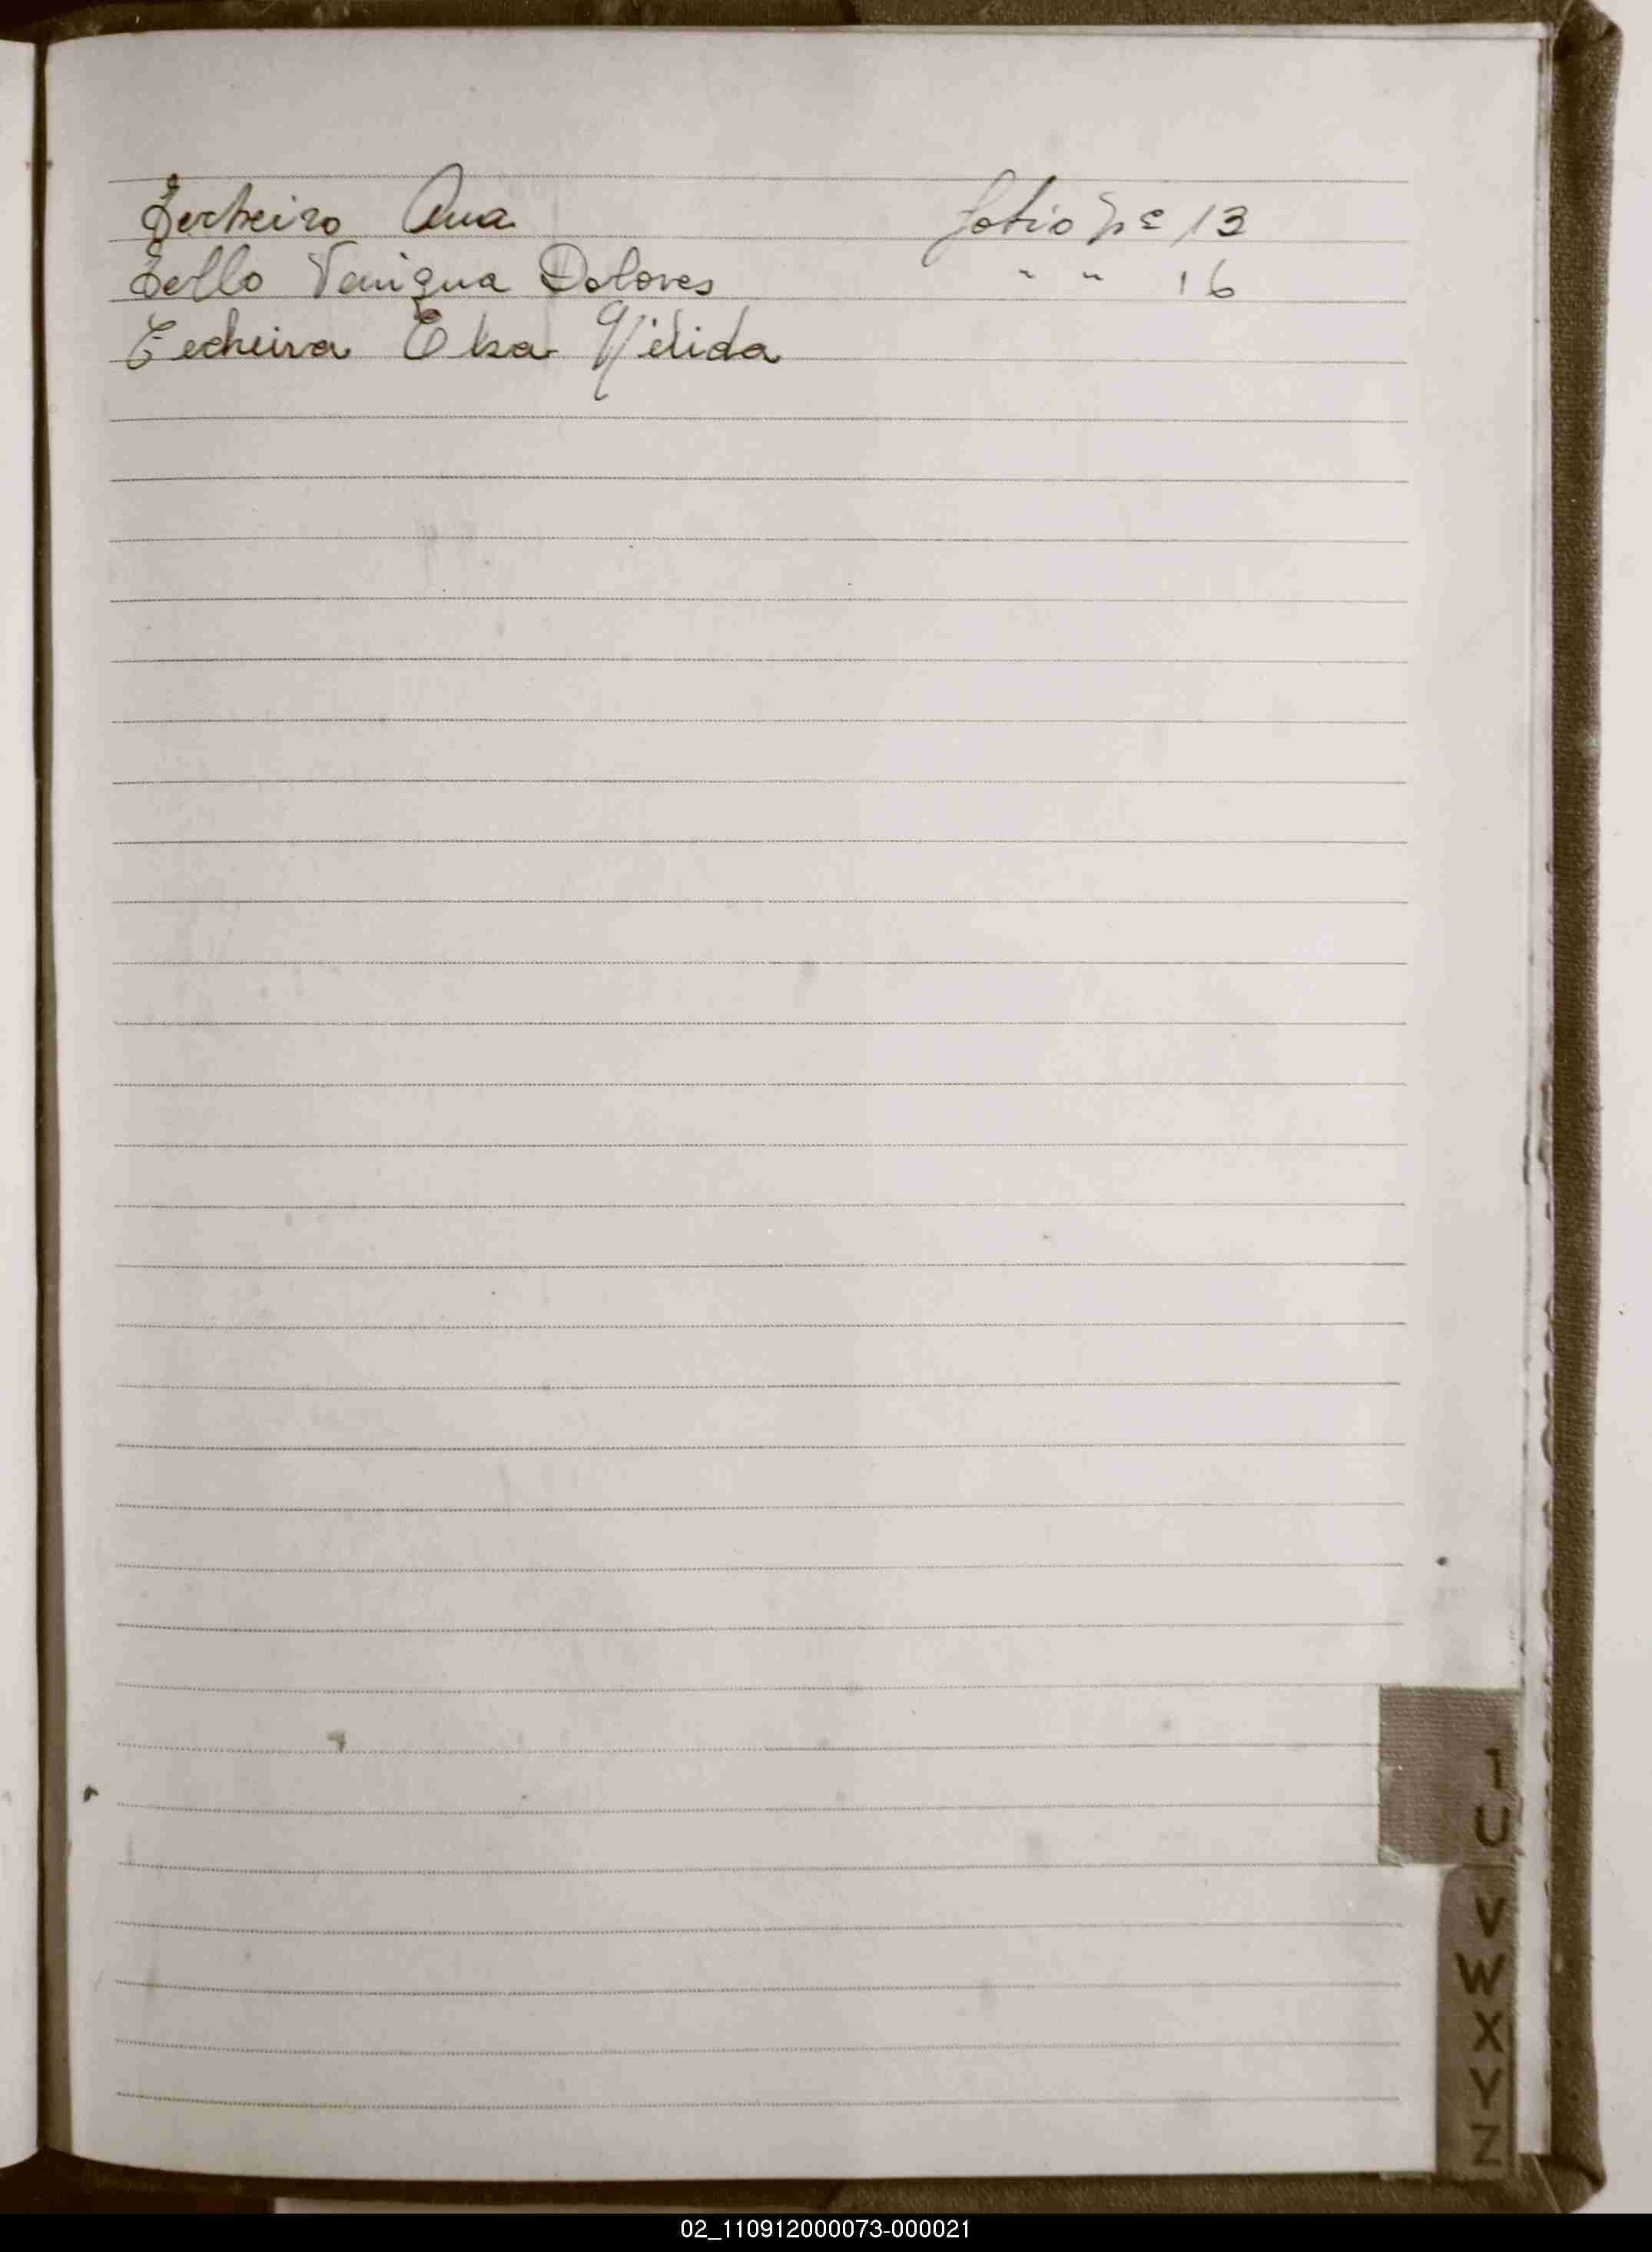 Techeiro Ana folio Nº 13
Tello Vanigua Dolores " " 16
Techeira Elsa Nélida
T
U
V
W
X
Y
Z
02_110912000073-000021